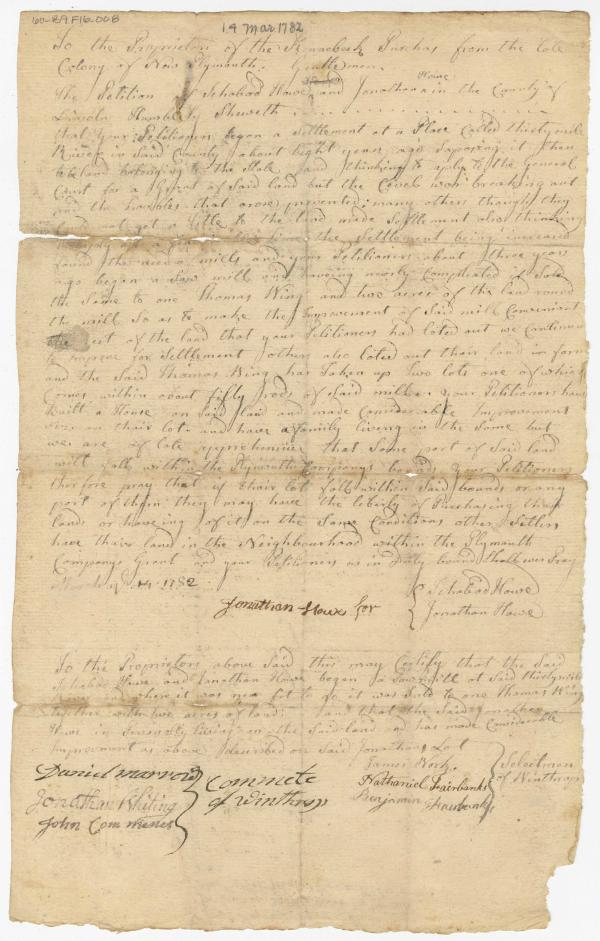 60-B9 F16.008
14 Mar 1782
To the Proprietors of the Kennebeck Purchas from the late
Colony of New Plymouth. Gentlemen.
The Petition of Ichabod Howe and Jonathan Howe in the County of
Lincoln Humbly Sheweth
that your Petitioners began a Settlement at a Place Called thirty mile
River in Said County about Eight years ago Suposing it then
to be land belonging to the State and thinking to aply to the General
Court for a Grant of Said land but the breaking out
and the troubles that arose prevented many others though they
Could not get a title to the land made Settlement also thinking
the Settlement being increased
found the need of mills and your Petitioners about three years
ago began a Saw mill and haveing nearly Compleated it Sold
the Same to one Thomas Wing and two acres of the land round
the mill So as to make the Improvement of Said mill Convenient
the rest of the land that your Petitioners had loted out we Continued
to improve for Settlement others also loted out their land in form
and the Said Thomas Wing has taken up two lots one of which
Comes within about fifty rods of Said mill your Petitioners have
Built a House on Said land and made Considerable Improvement
on their lot and have a family living in the Same but
we are of late apprehensive that Some part of Said land
will fall within the Plymouth Companys bounds your Petitioners
therfore pray that if their lot fall within Said bounds or any
part of them they may have the liberty of Purchasing their
land or haveing of it on the Same Conditions other Setlers
have their land in the Neighbourhood within the Plymouth
Companys Grant and your Petitioners as in Duty bound Shall ever Pray
March 14 1782
Ichabod Howe
Jonathan Howe for
Jonathan Howe
To the Proprietors above Said this may Certify that the Said
Ichabod Howe and Jonathan Howe began a Sawmill at Said thirty mile
River and where it was near fit to go it was Sold to one Thomas Wing
together with two acres of land and that the Said Jonathan
Howe is living on the Said land and has made Considerable
Improvement as above described on Said Jonathans Lot
James Work
Daniel marrow
Commete
of Winthrop
Nathaniel Fairbanks
Selectmen
of Winthrop
Jonathan Whiting
Benjamin Fairbanks
John